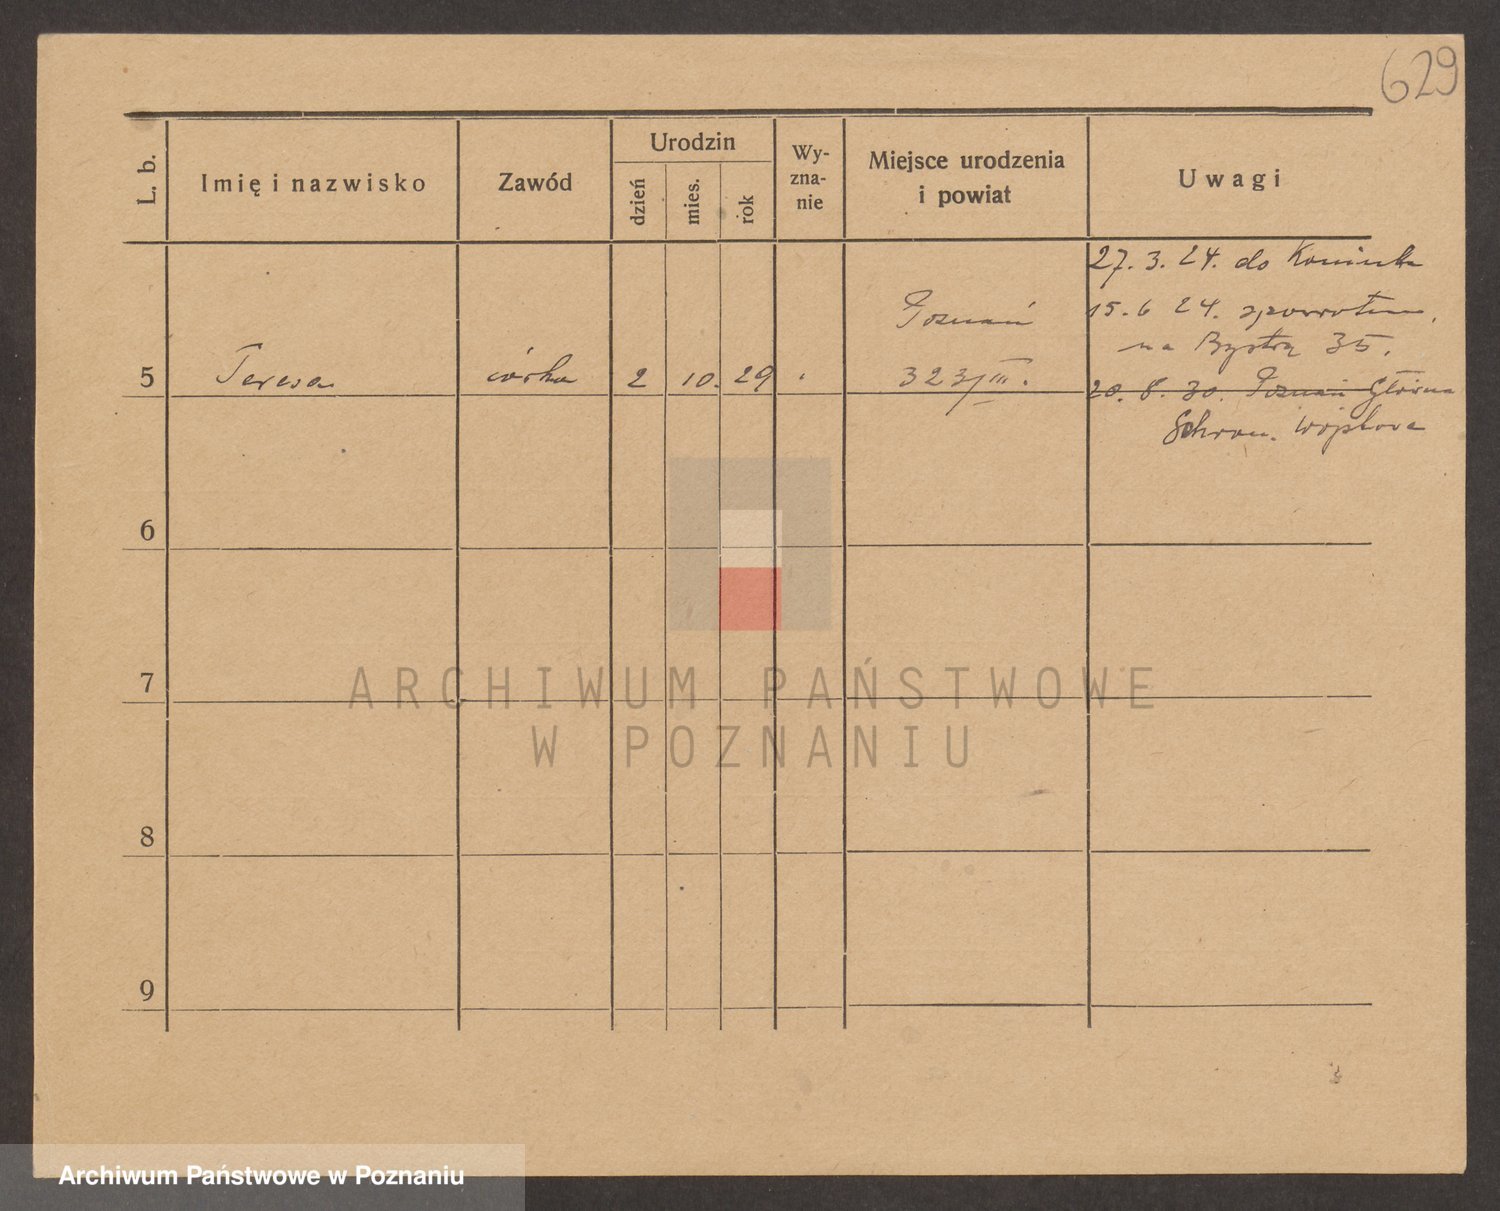 629
L. b.
Imię i nazwisko
Zawód
Urodzin
dzień
mies.
rok
Wy-
zna-
nie
Miejsce urodzenia
i powiat
Uwagi
27. 3. 24. do
15. 6 24. zpowrotem
na Bystrą 35.
Poznań
5 Teresa córka 2 10. 29 323/III.
20. 8. 30. Poznań Główna
Schron.
6
7
8
9
ARCHIWUM PAŃSTWOWE
W POZNANIU
Archiwum Państwowe w Poznaniu